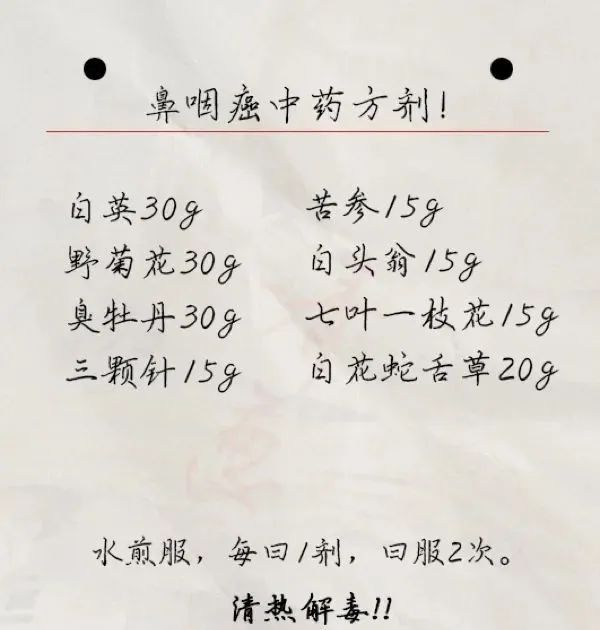 鼻咽癌中药方剂!
白英30g 苦参15g
野菊花30g 白头翁15g
臭牡丹30g 七叶一枝花15g
三颗针15g 白花蛇舌草20g
水煎服，每日1剂，日服2次。
清热解毒!!